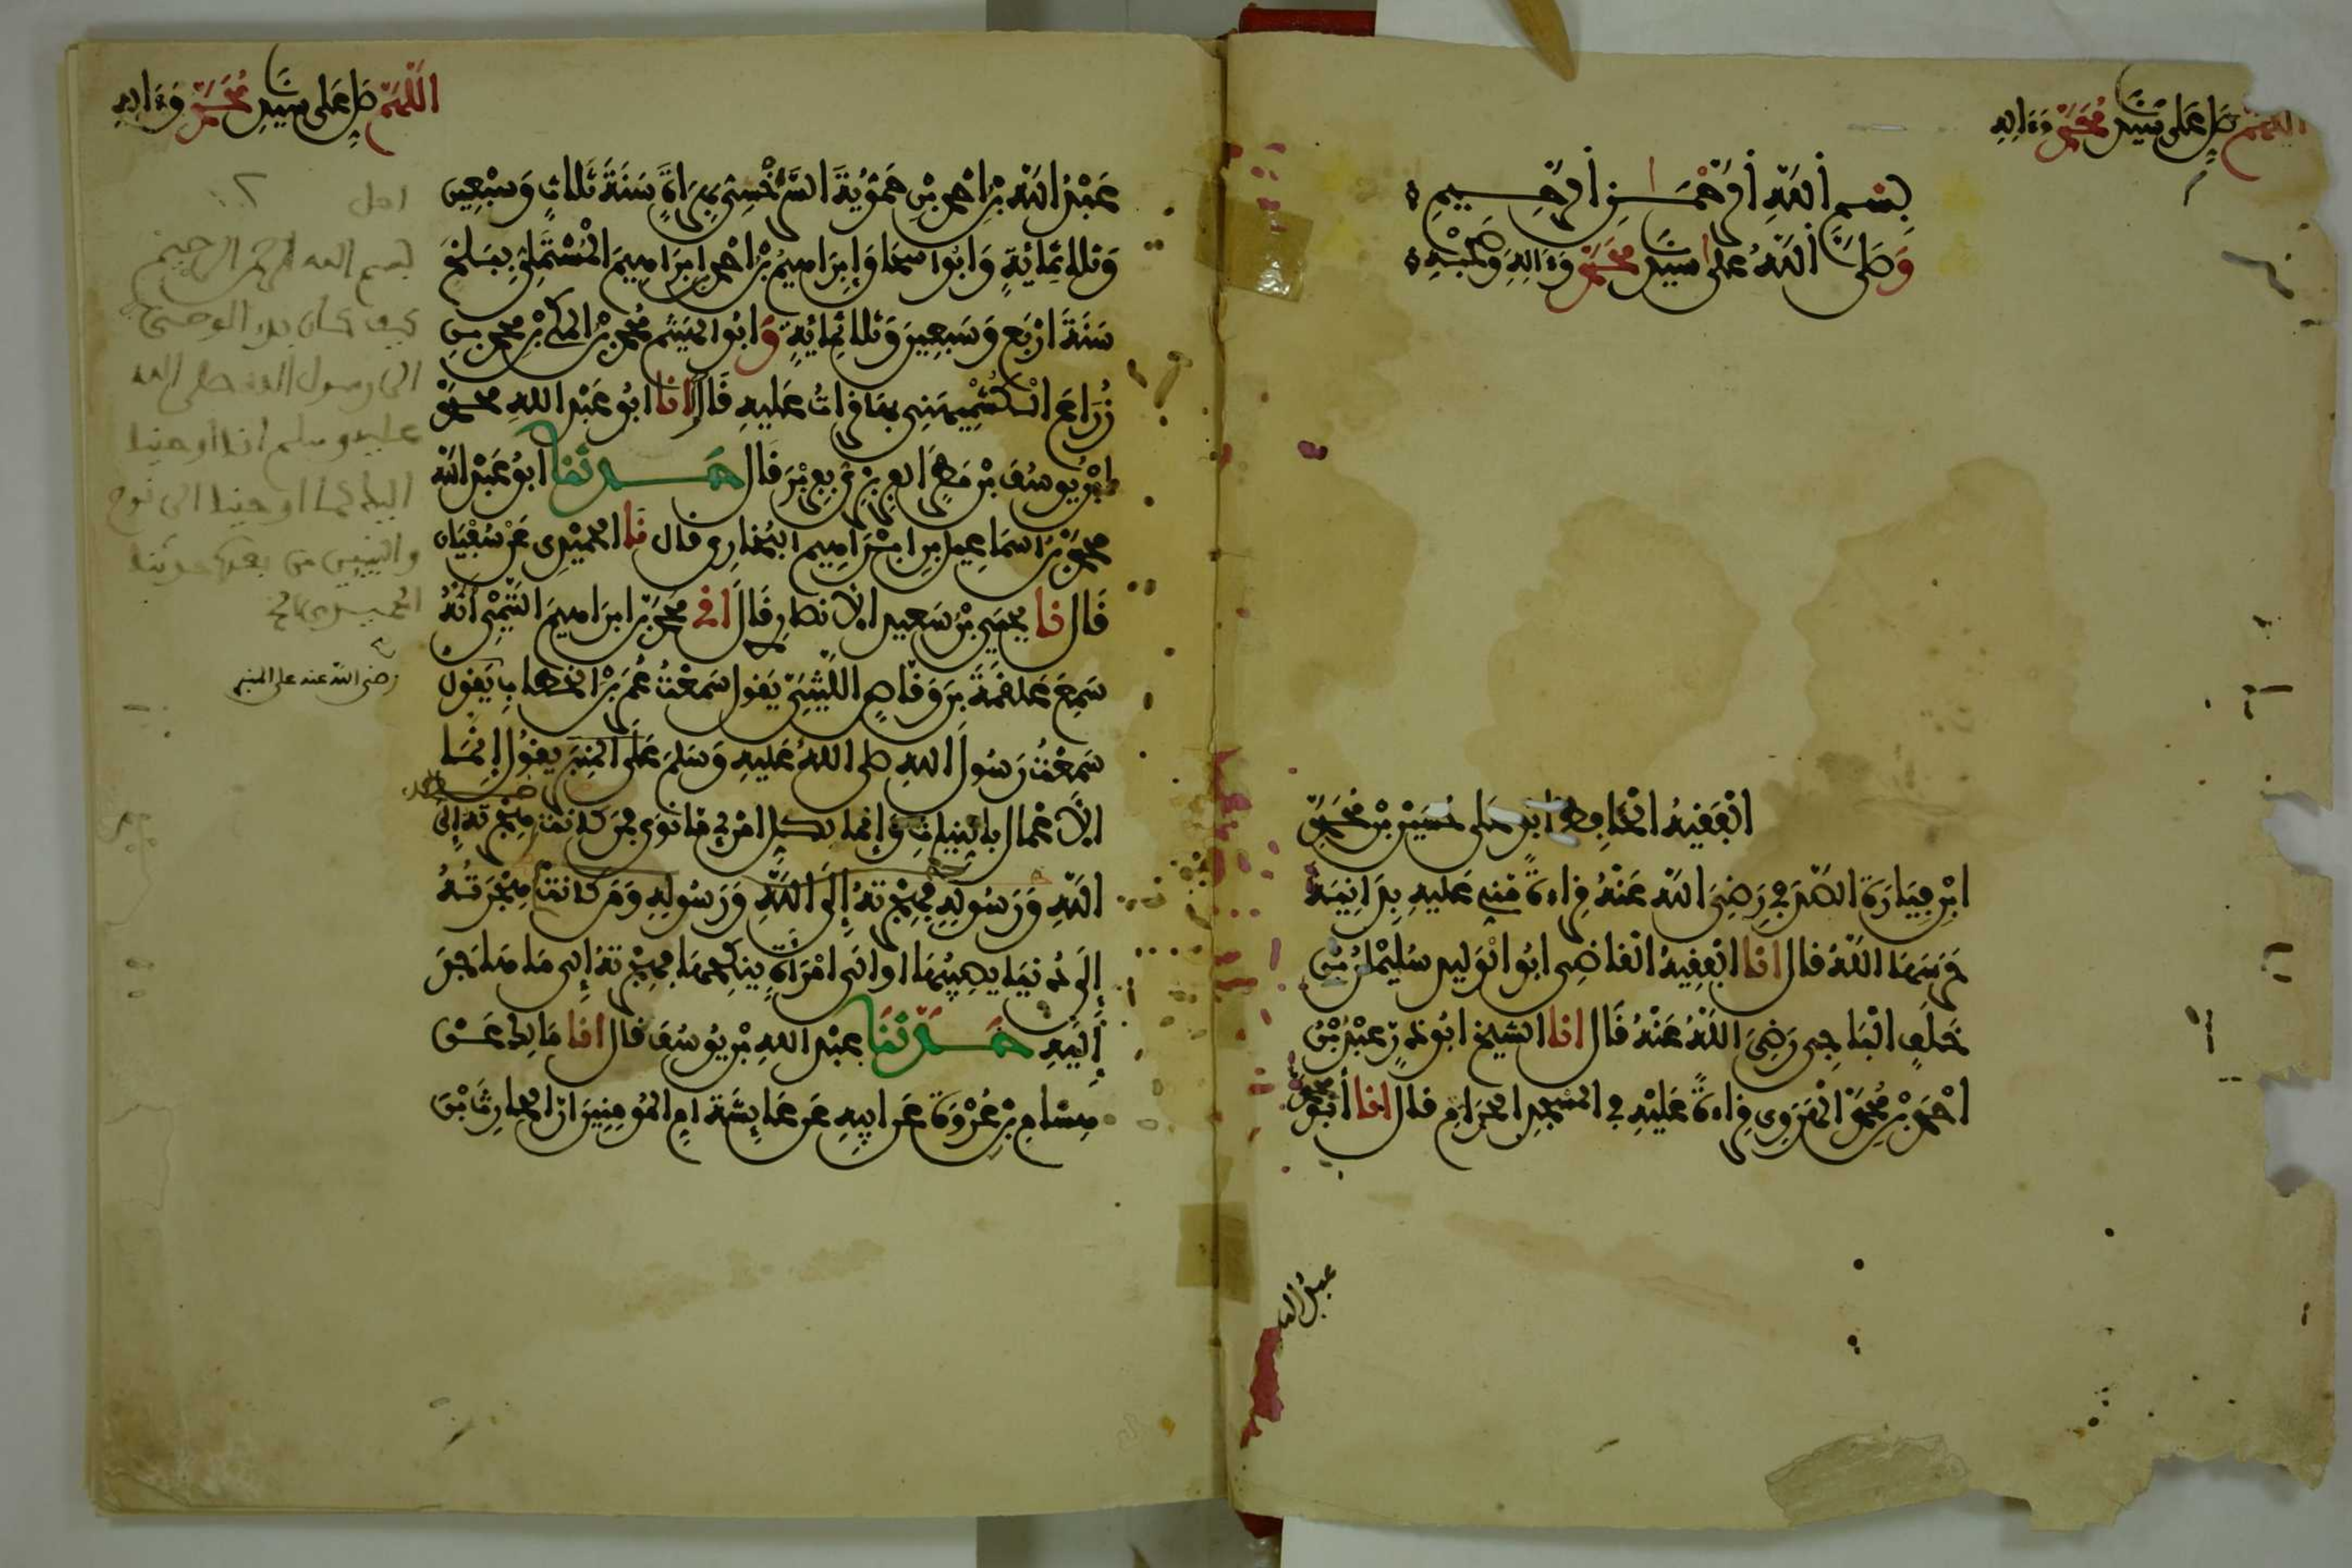 اللهم صل على سيدنا محمد وءاله
بسم الله الرحمن الرحيم
وصلى الله على سيدنا محمد وءاله وصحبه
الفقيه الحافظ ابو علي حسين بن محمد
ابن فيارة الصدفي رضي الله عنه قراءة مني عليه بدانية
حرسها الله قال انا الفقيه القاضي ابو الوليد سليمان بن
خلف الباجي رضي الله عنه قال انا الشيخ ابو ذر عبد بن
احمد بن محمد الهروي قراءة عليه في المسجد الحرام قال انا أبو محمد
عبد الله
اللهم صل على سيدنا محمد وءاله
عبد الله بن احمد بن حموية السرخسي بهراة سنة ثلاث وسبعين
وثلاثمائة وابو اسحاق إبراهيم بن احمد ابراهيم المستملي ببلخ
سنة اربع وسبعين وثلاثمائة وابو الهيثم محمد بن المكي بن محمد بن
زراع الكشميهني بها قراءة عليه قال انا ابو عبد الله محمد
ابن يوسف بن مطر الفربري قال حدثنا ابو عبد الله
محمد بن اسماعيل بن ابراهيم البخاري قال نا الحميدي عن سفيان
قال نا يحيى بن سعيد الانصاري قال اخبرني محمد بن ابراهيم التيمي أنه
سمع علقمة بن وقاص الليثي يقول سمعت عمر بن الخطاب يقول
سمعت رسول الله صلى الله عليه وسلم على المنبر يقول إنما
الأعمال بالنيات وإنما لكل امرئ ما نوى فمن كانت هجرته إلى
الله ورسوله فهجرته إلى الله ورسوله ومن كانت هجرته
إلى دنيا يصيبها او الى امرأة ينكحها فهجرته إلى ما هاجر
إليه حدثنا عبد الله بن يوسف قال انا مالك عن
هشام بن عروة عن ابيه عن عائشة ام المومنين ان الحارث بن
بسم الله الرحمن الرحيم
كيف كان بدء الوحي
الى رسول الله صلى الله
عليه وسلم انا أوحينا
اليك كما اوحينا الى نوح
والنبيين من بعده حدثنا
الحميدي
رضي الله عنه على المنبر